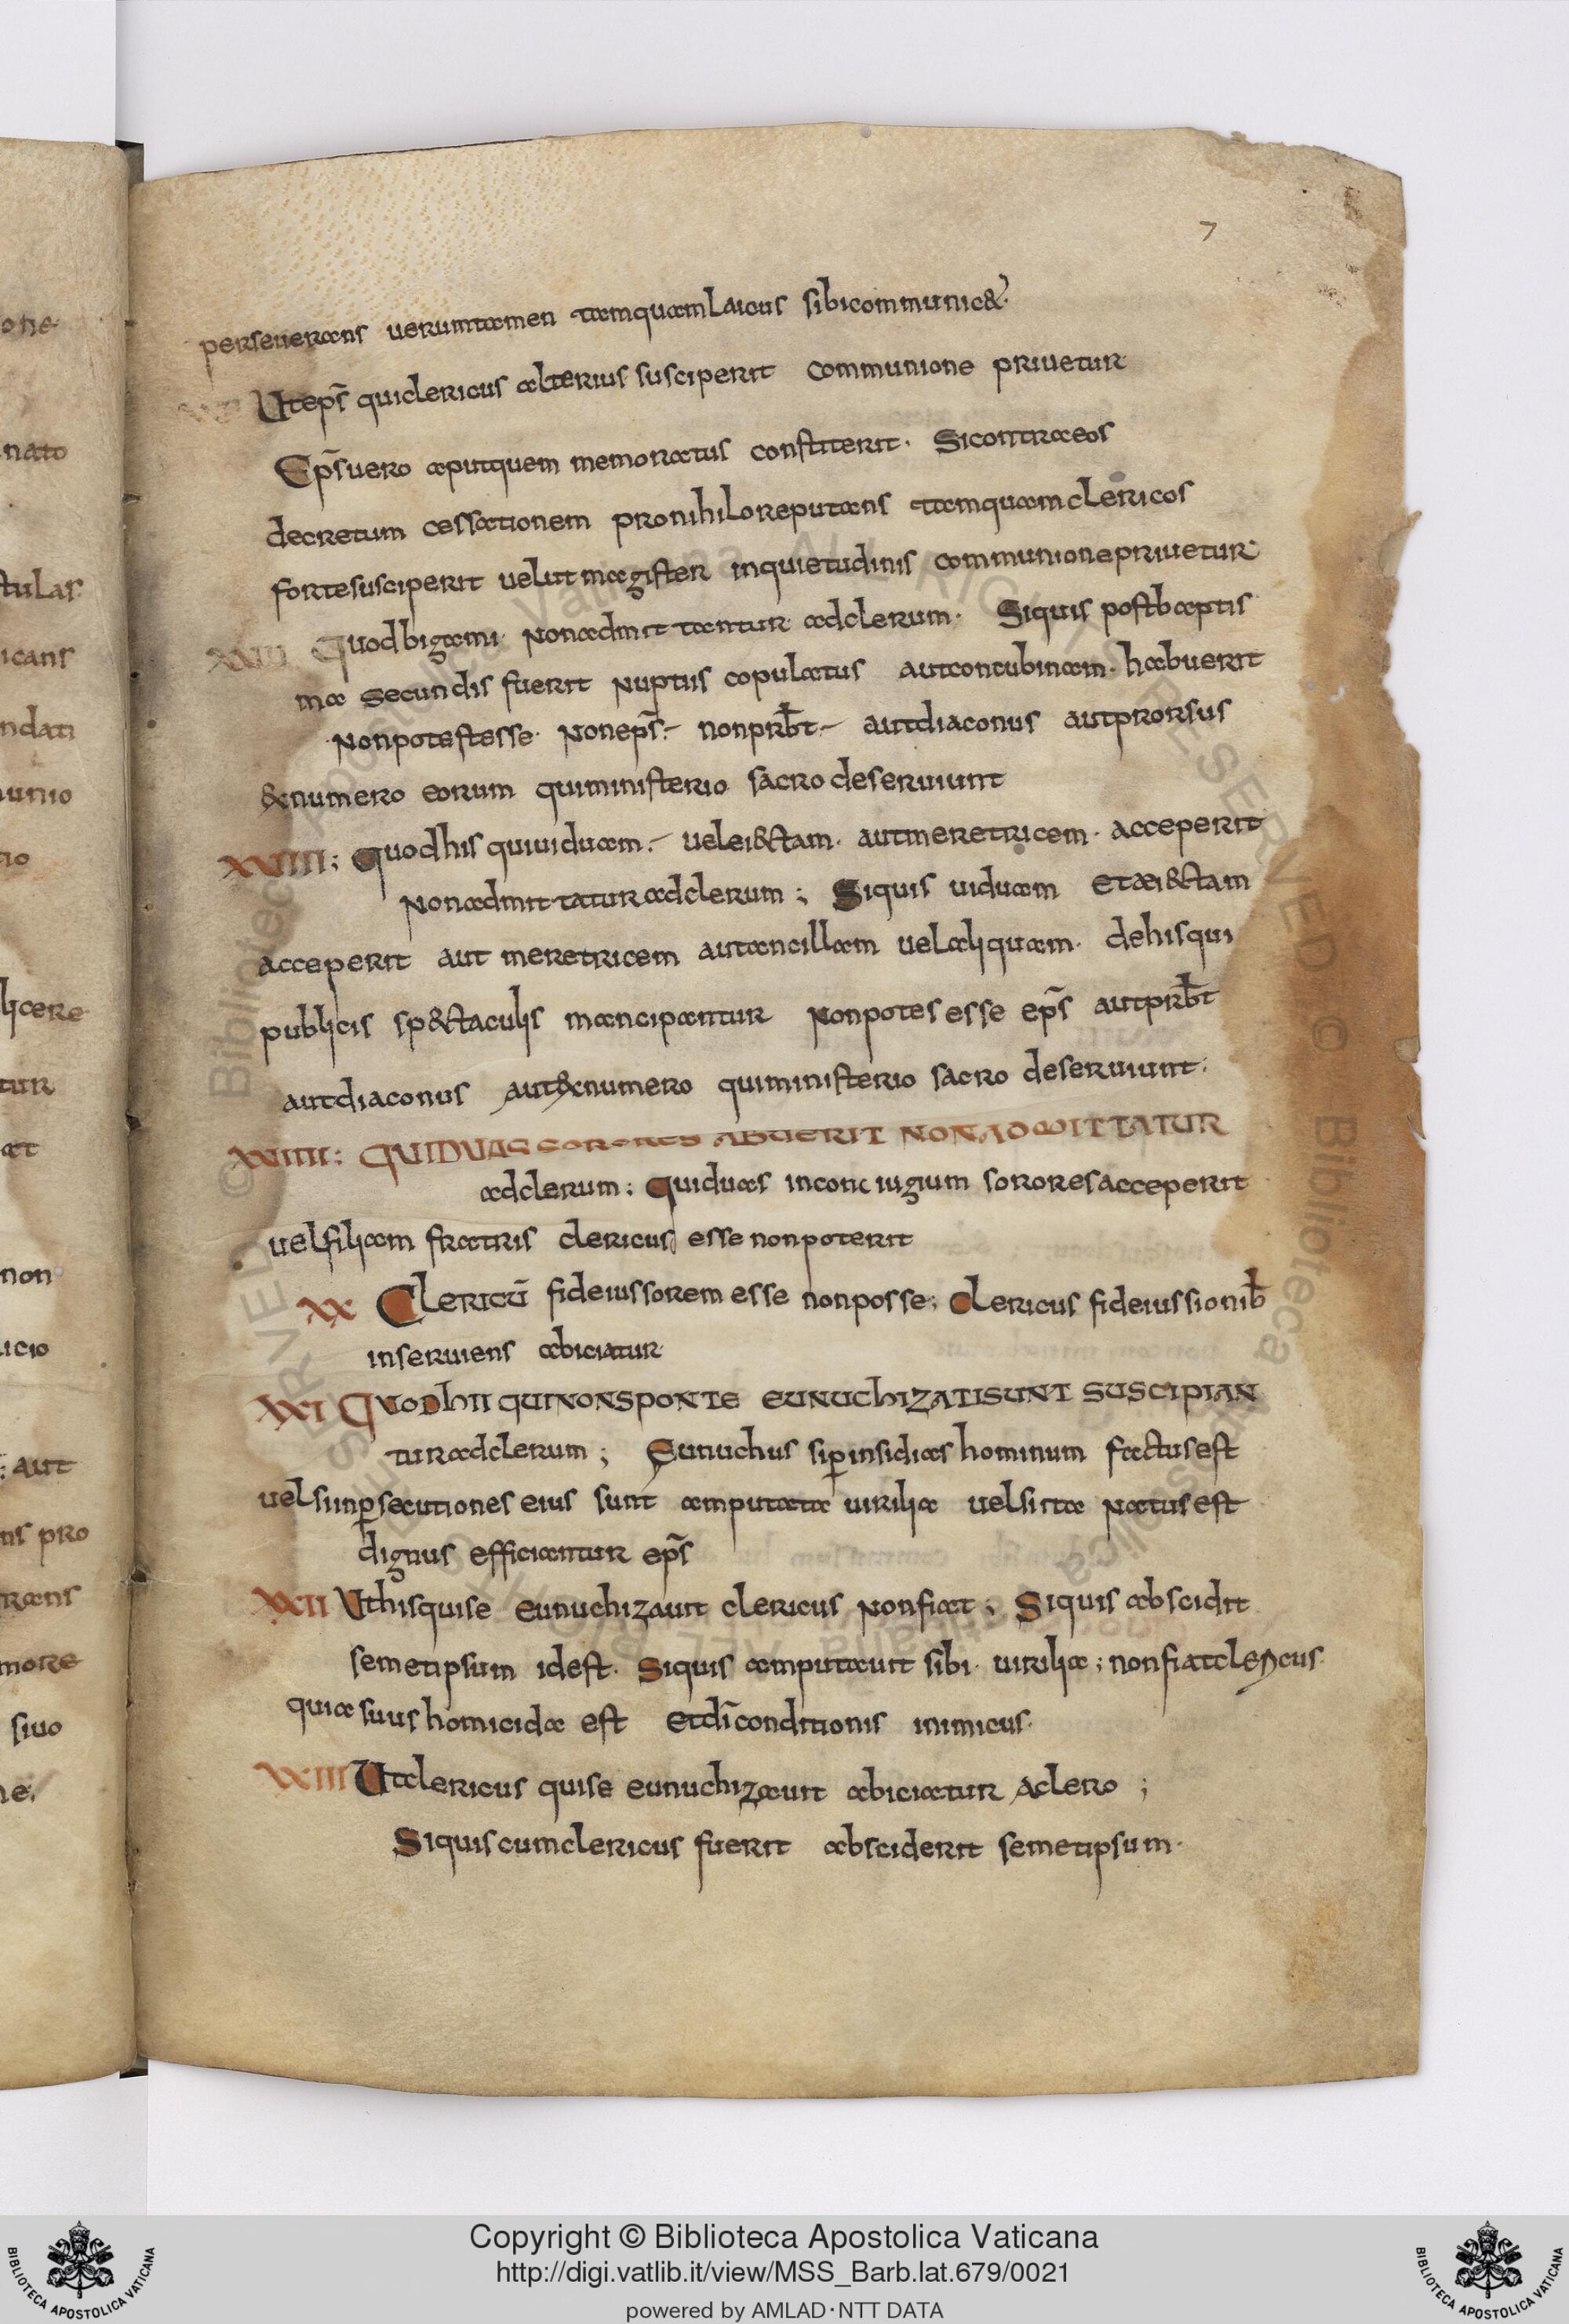 7
perseuerans uerumtamen tamquam laicus sibi communic&.
Ut ep̄s qui clericus alterius susciperit communione priuetur
Ep̄s uero aput quem memoratus constiterit. Si contra eos
decretum cessationem pro nihilo reputans tamquam clericos
forte susciperit uelut magister inquietudinis communione priuetur
XVII Quod bigami. Non admittantur ad clerum. Siquis post baptis
ma secundis fuerit nuptiis copulatus aut concubinam. habuerit
Non potest esse. Non ep̄s. non prb̄t aut diaconus aut prorsus
ex numero eorum qui ministerio sacro deseruiunt
XVIII: Quod his qui uiduam. uel ei&ctam. aut meretricem. acceperit
Non admittatur ad clerum; Siquis uiduam et aei&ctam
acceperit aut meretricem aut ancillam uel aliquam. de his qui
publicis sp&ctaculis mancipantur Non potes esse ep̄s aut prb̄t
aut diaconus aut ex numero qui ministerio sacro deseruiunt.
XVIIII: QUI DUAS SORORES ABUERIT NON ADMITTATUR
ad clerum; Qui duas in conciugium sorores acceperit
uel filiam fratris clericus esse non poterit
XX Clericū fideiussorem esse non posse; Clericus fideiussionib̄
inseruiens abiciatur
XXI QUOD HII QUI NON SPONTE EUNUCHIZATI SUNT SUSCIPIAN
tur ad clerum; Eunuchus si ꝑ insidias hominum factus est
uel si in ꝑsecutiones eius sunt amputata uirilia uel si ita natus est
dignus efficiantur ep̄s
XXII Ut his qui se eunuchizauit clericus non fiat; Siquis abscidit
semetipsum id est. Siquis amputauit sibi. uirilia; non fiat clericus.
quia suus homicida est et dī conditionis inimicus.
XXIII Ut clericus qui se eunuchizauit abiciatur a clero;
Siquis cum clericus fuerit absciderit semetipsum.
Copyright © Biblioteca Apostolica Vaticana
http://digi.vatlib.it/view/MSS_Barb.lat.679/0021
powered by AMLAD·NTT DATA
BIBLIOTECA APOSTOLICA VATICANA
BIBLIOTECA APOSTOLICA VATICANA